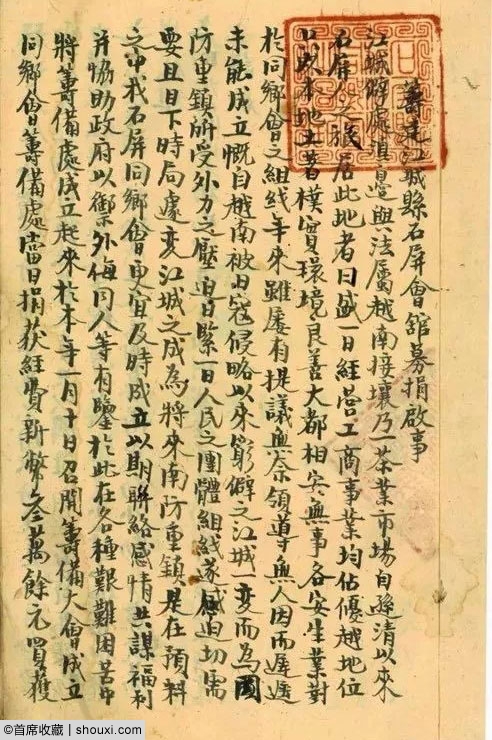 籌建江城縣石屏會舘募捐啟事
江城僻處滇邊與法屬越南接壤乃一茶業市場自遜清以來
石屏人之旅居此地者日盛一日經營工商事業均佔優越地位
以本地土著樸實環境良善大都相安無事各安生業對
於同鄉會之組織年來雖屢有提議無奈領導無人因而遲遲
未能成立慨自越南被日寇侵略以來窮僻之江城一變而為國
防重鎮所受外力之壓迫日緊一日人民之團體組織遂感迫切需
要且目下時局遽變江城之成為將來南防重鎮是在預料
之中我石屏同鄉會更宜及時成立以期聯絡感情共謀福利
并協助政府以禦外侮同人等有鑒於此在各種艱難困苦中
將籌備處成立起來於本年一月十日召開籌備大會成立
同鄉會籌備處當日捐獲經費新幣叁萬餘元買獲
©首席收藏 | shouxi.com